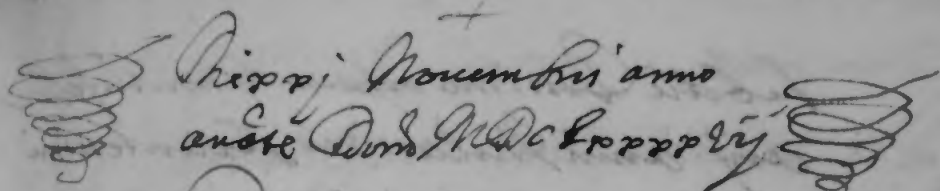 Die xxj Nouembris anno
Domi MDCLxxxxvij